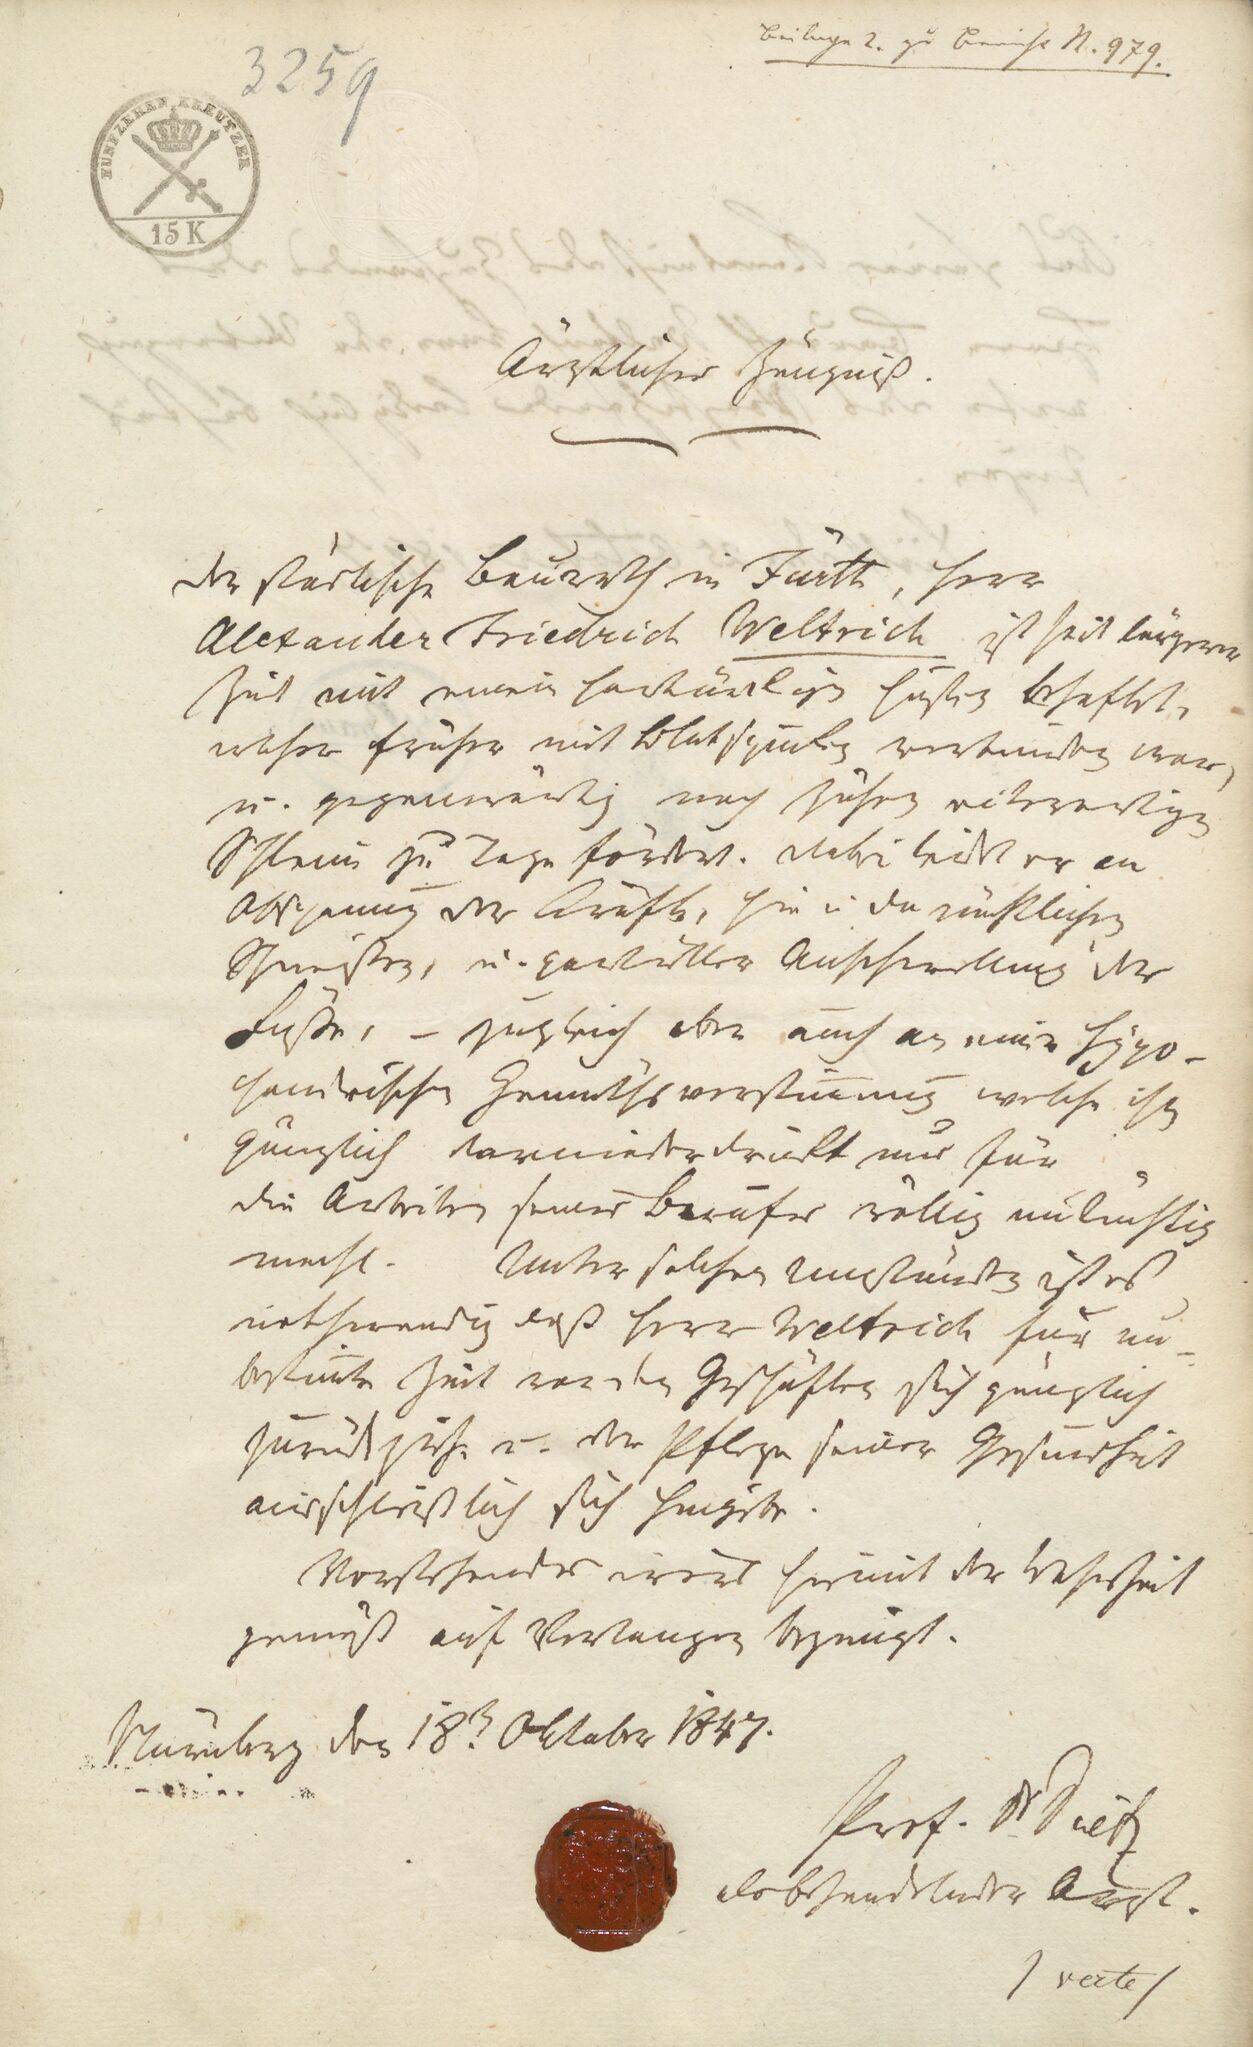 Beilage 2. zu Bericht N. 979.
3259
FÜNFZEHEN KREUTZER
15 K
Ärztliches Zeugniß.
Der städtische Baurath in Fürth, Herr
Alexander Friedrich Weltrich ist seit längerer
Zeit mit einem hartnäckigen Husten behaftet,
welcher früher mit Blutspucken verbunden war,
u. gegenwärtig noch zähen eiterartigen
Schleim zu Tage fördert. Dabei leidet er an
Abspannung der Kräfte, hie u. da nächtlichen
Schweißen, u. partieller Anschwellung der
Füße, – zugleich aber auch an einer hypo-
chondrischen Gemüthsverstimmung welche ihn
gänzlich darniederdrückt und für
die Arbeiten seines Berufes völlig untüchtig
macht. Unter solchen Umständen ist es
nothwendig daß Herr Weltrich für un-
bestimte Zeit von den Geschäften sich gänzlich
zurückziehe u. der Pflege seiner Gesundheit
ausschließlich sich hingebe.
Vorstehendes wird hiermit der Wahrheit
gemäß auf Verlangen bezeugt.
Nürnberg den 18. Oktober 1847.
Prof. Dr Dietz
als behandelnder Arzt.
/ verte /